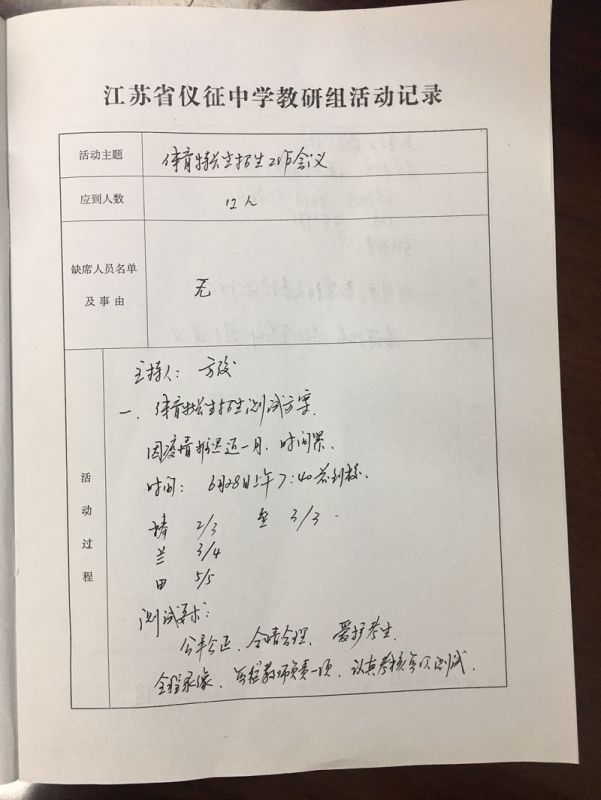 江苏省仪征中学教研组活动记录
活动主题 体育特长生招生工作会议
应到人数 12人
缺席人员名单
及事由 无
活动过程
主持人：方
一、体育特长生招生测试方案.
因疫情推迟近一月、时间紧.
时间： 6月28日上午7:40前到校.
棒 2/3 垒 3/3.
兰 3/4
田 5/5
测试要求：
公平公正、合情合理、爱护考生.
全程录像、每位教师负责一项、认真考核每次测试.